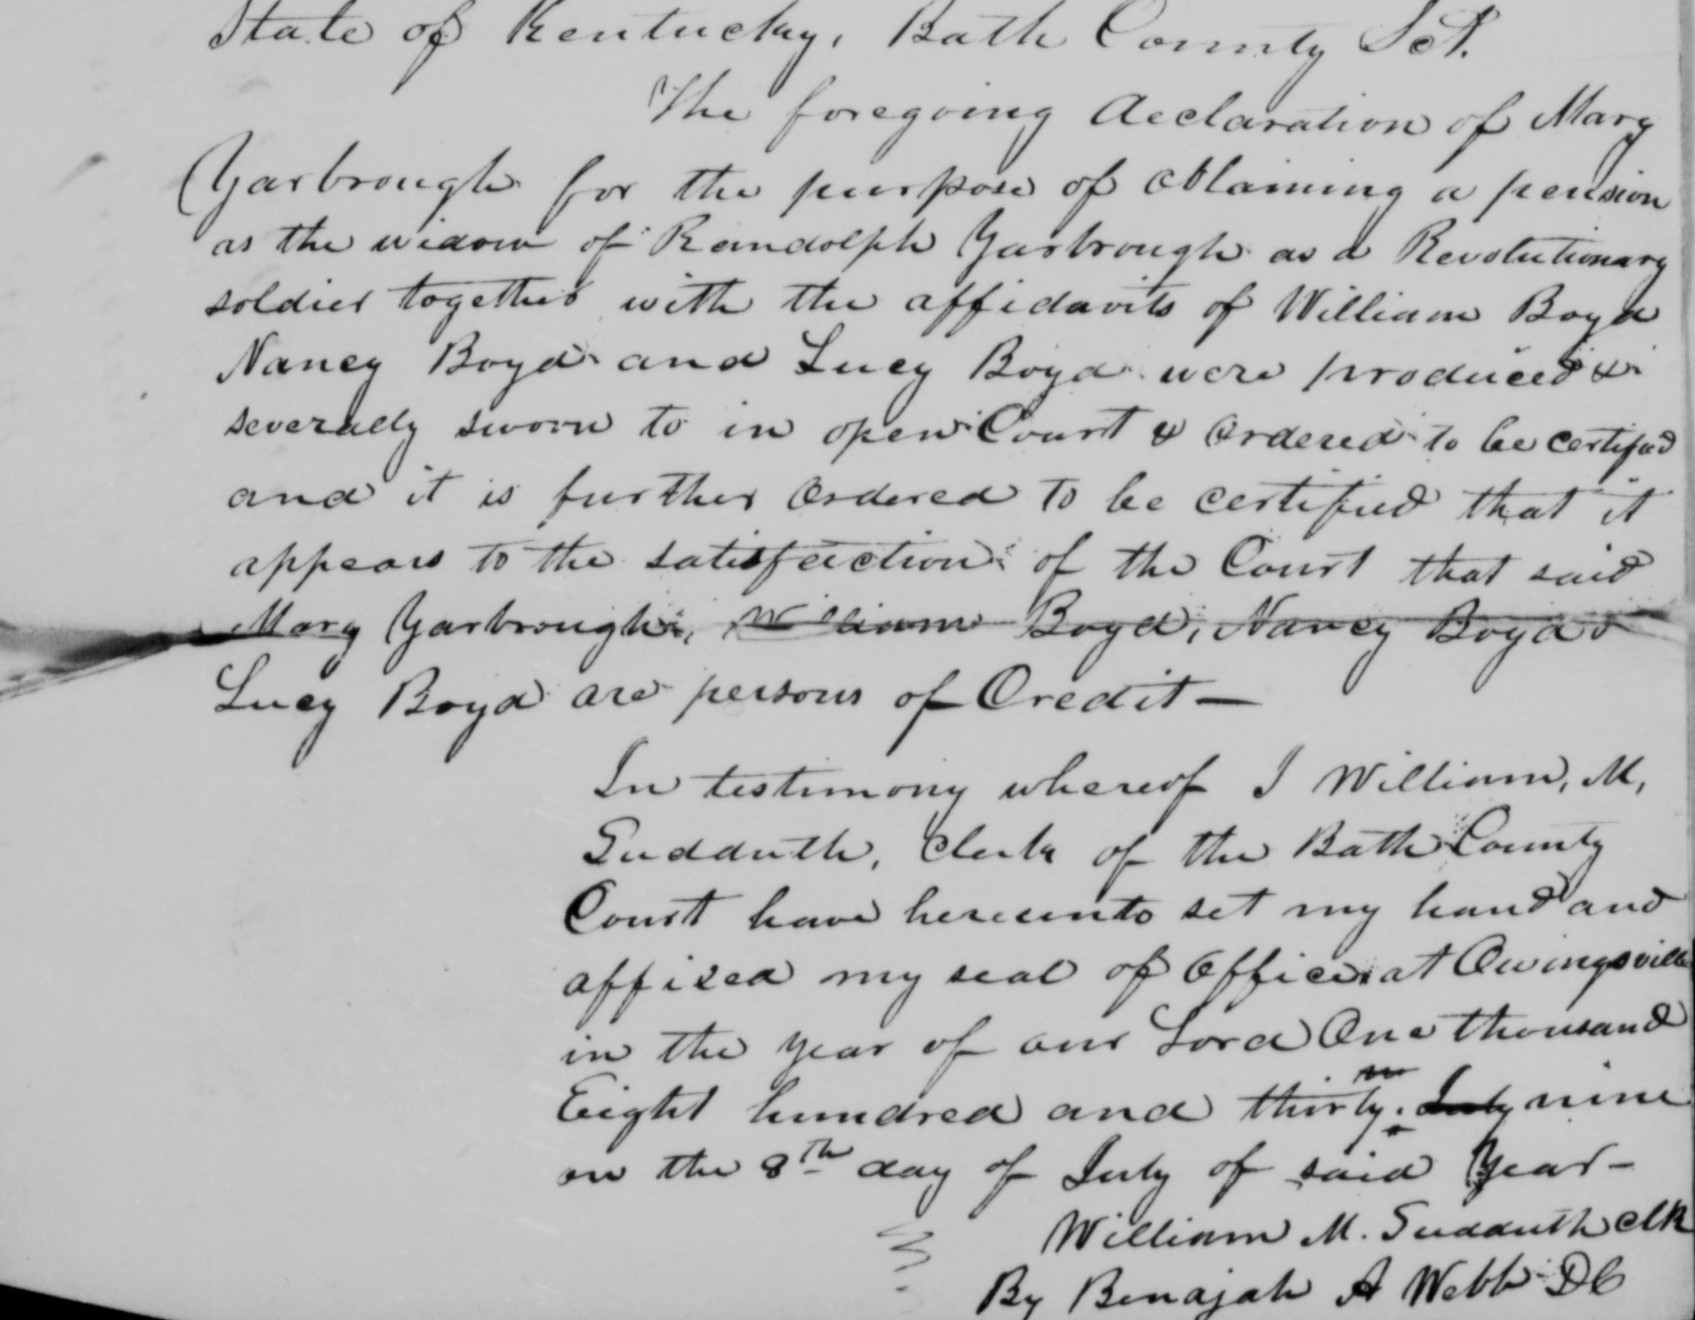 State of Kentucky, Bath County Sct.
The foregoing declaration of Mary
Yarbrough for the purpose of obtaining a pension
as the widow of Randolph Yarbrough as a Revolutionary
soldier together with the affidavits of William Boyd
Nancy Boyd and Lucy Boyd were produced &
severally sworn to in open Court & ordered to be certified
and it is further ordered to be certified that it
appears to the satisfaction of the Court that said
Mary Yarbrough, William Boyd, Nancy Boyd &
Lucy Boyd are persons of Credit —
In testimony whereof I William, M,
Sudduth, Clerk of the Bath County
Court have hereunto set my hand and
affixed my seal of office at Owingsville
in the year of our Lord One thousand
Eight hundred and thirty. July nine
on the 8th day of July of said year –
William M. Sudduth clk
By Benajah A Webb DC